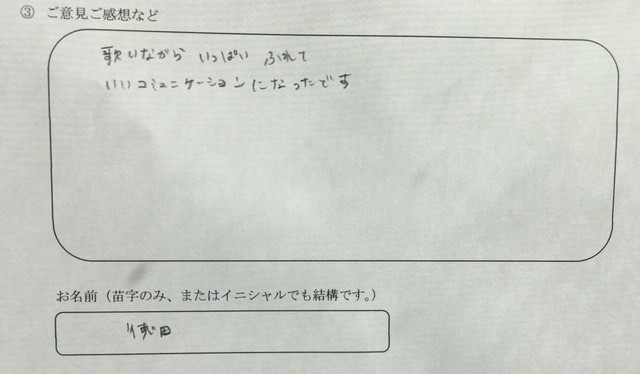 ③ ご意見ご感想など
歌いながら いっぱい ふれて
いいコミュニケーションになったです
お名前（苗字のみ、またはイニシャルでも結構です。）